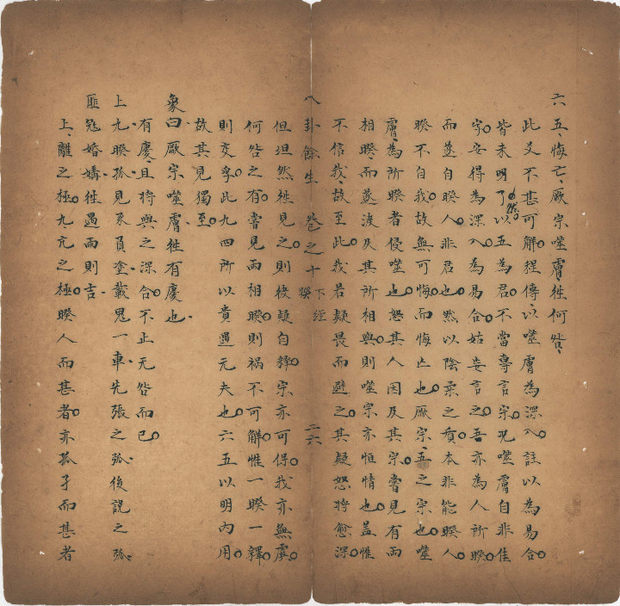 六五悔亡厥宗噬膚往何咎
此爻不甚可解程傳以噬膚為深入註以為易合
皆未明了然以五為君不當專言宗况噬膚自非佳
字安得為深入為易合姑妄言之吾亦為人所睽
而遂自睽人非君也然以陰柔之質本非能睽人
睽不自我故無可悔而悔亡也厥宗五之宗也噬
膚為所睽者侵噬也怒其人因及其宗嘗見有兩
相睽而遂波及其所相與則噬宗亦恒情也蓋惟
不信我故至此我若疑畏而避之其疑怒將愈深
八卦餘生 卷之十 下經 睽 二六
但坦然往見之則彼疑自釋宗亦可保我亦無虞
何咎之有嘗見兩相睽則禍不可解惟一睽一釋
則交孚此九四所以貴遇元夫也六五以明内用
故其見獨至
象曰厥宗噬膚往有慶也
有慶且將與之深合不止无咎而已
上九睽孤見豕負塗載鬼一車先張之弧後說之弧
匪冦婚媾往遇雨則吉
上離之極九亢之極睽人而甚者亦孤孑而甚者